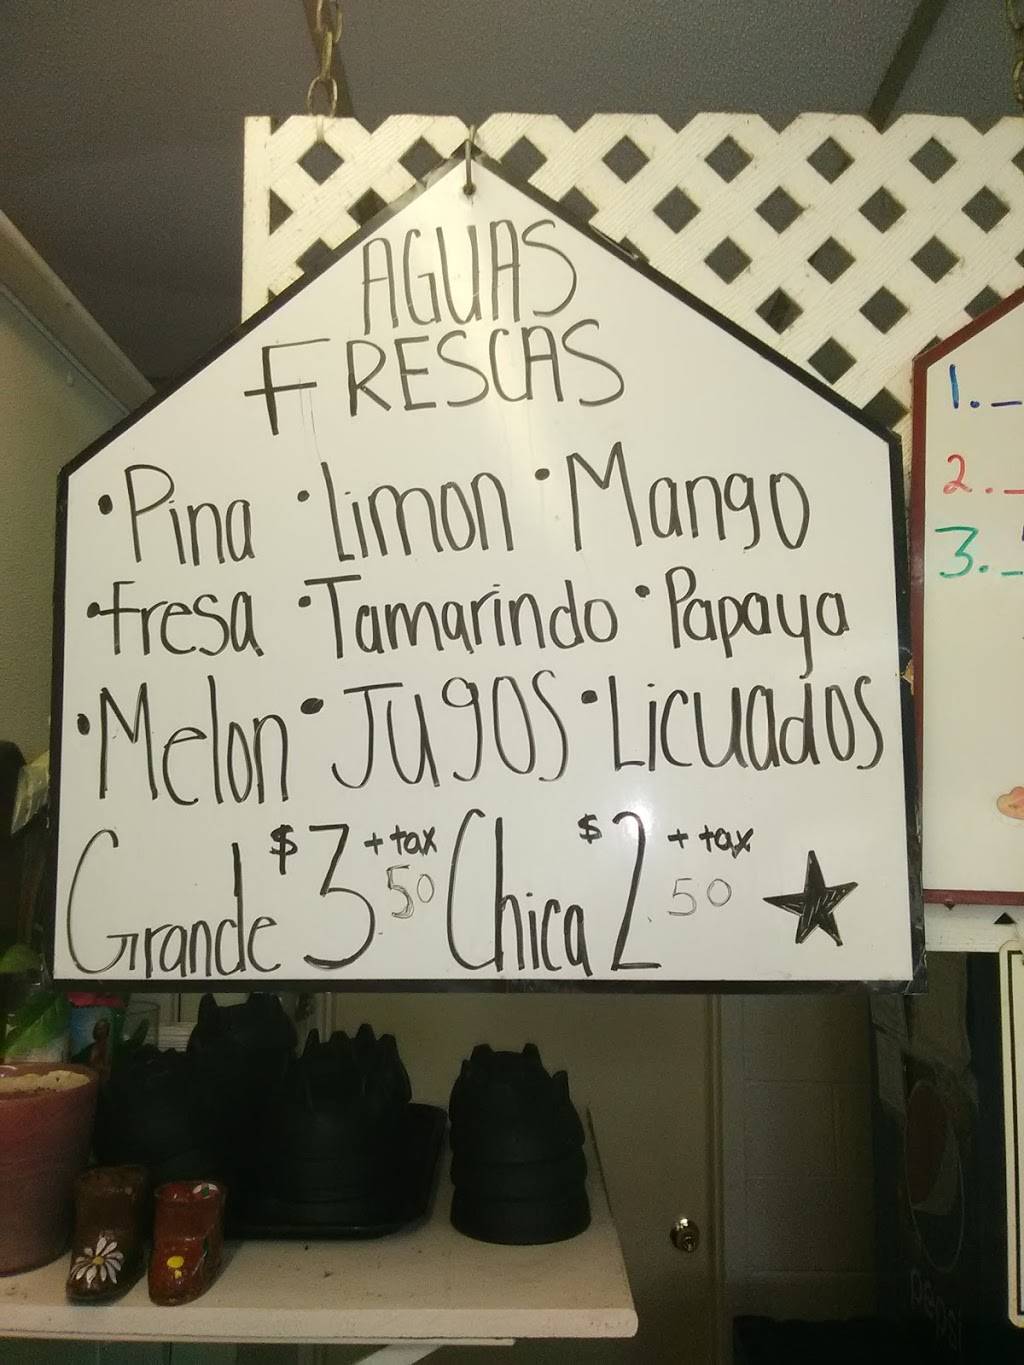 AGUAS
FRESCAS
• Pina • Limon • Mango
• Fresa • Tamarindo • Papaya
• Melon • JUgOS • LicuadOS
Grande $3.50 + tax Chica $2.50 + tax ★
1. _
2. _
3. _
pepsi